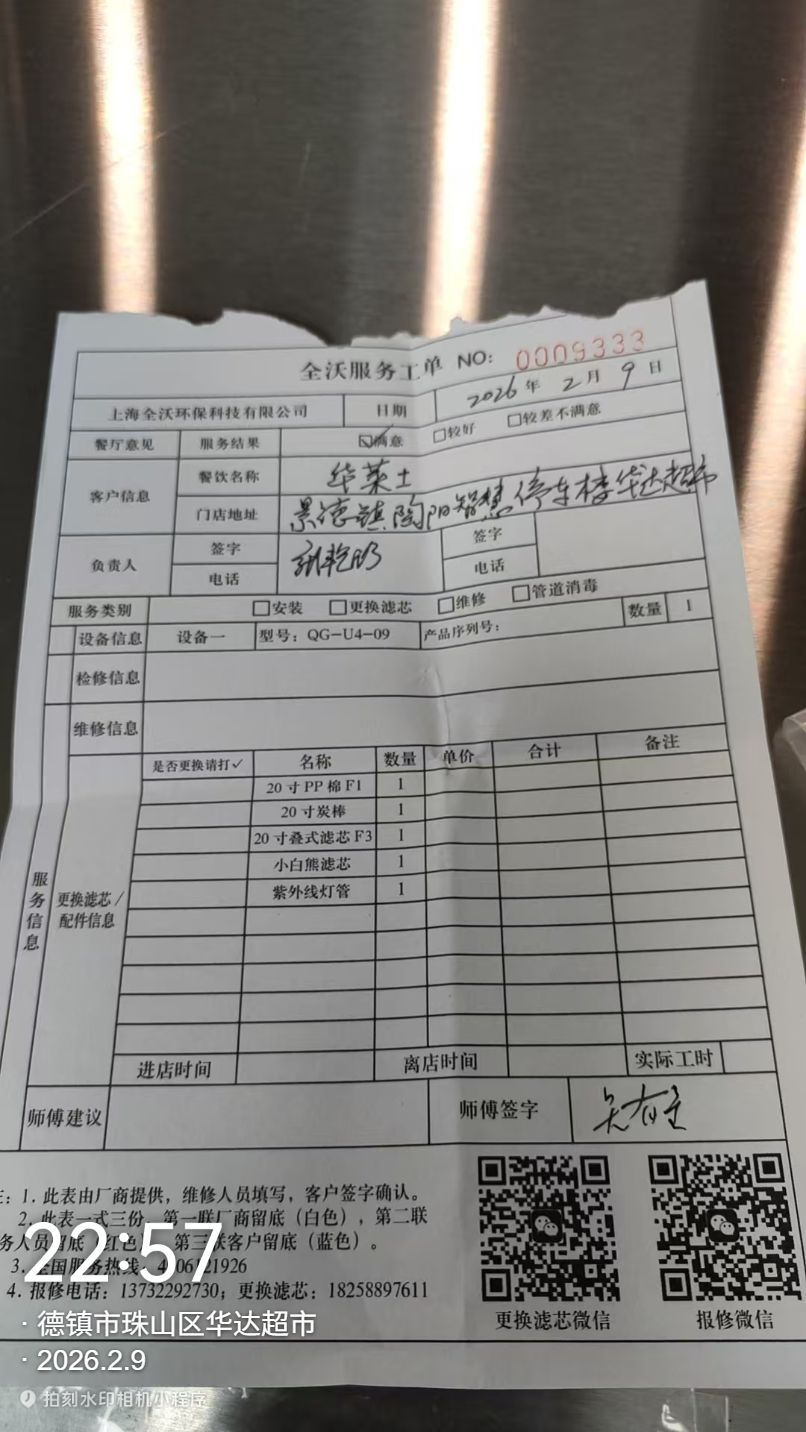 全沃服务工单 NO: 0009333
上海全沃环保科技有限公司 日期 2026年2月9日
餐厅意见 服务结果 ☑满意 □较好 □较差不满意
客户信息 餐饮名称 华莱士
门店地址 景德镇陶阳智慧停车楼华达超市
负责人 签字 签字
电话 电话
服务类别 □安装 □更换滤芯 □维修 □管道消毒
设备信息 设备一 型号: QG-U4-09 产品序列号: 数量 1
检修信息
维修信息
服务信息
更换滤芯/配件信息
是否更换请打✓ 名称 数量 单价 合计 备注
20寸PP棉F1 1
20寸炭棒 1
20寸叠式滤芯F3 1
小白熊滤芯 1
紫外线灯管 1
进店时间 离店时间 实际工时
师傅建议 师傅签字
1. 此表由厂商提供，维修人员填写，客户签字确认。
2. 此表一式三份，第一联厂商留底（白色），第二联
务人员留底（红色），第三联客户留底（蓝色）。
3. 全国服务热线: 4006121926
4. 报修电话: 13732292730; 更换滤芯: 18258897611
更换滤芯微信 报修微信
22:57
· 德镇市珠山区华达超市
· 2026.2.9
拍刻水印相机小程序